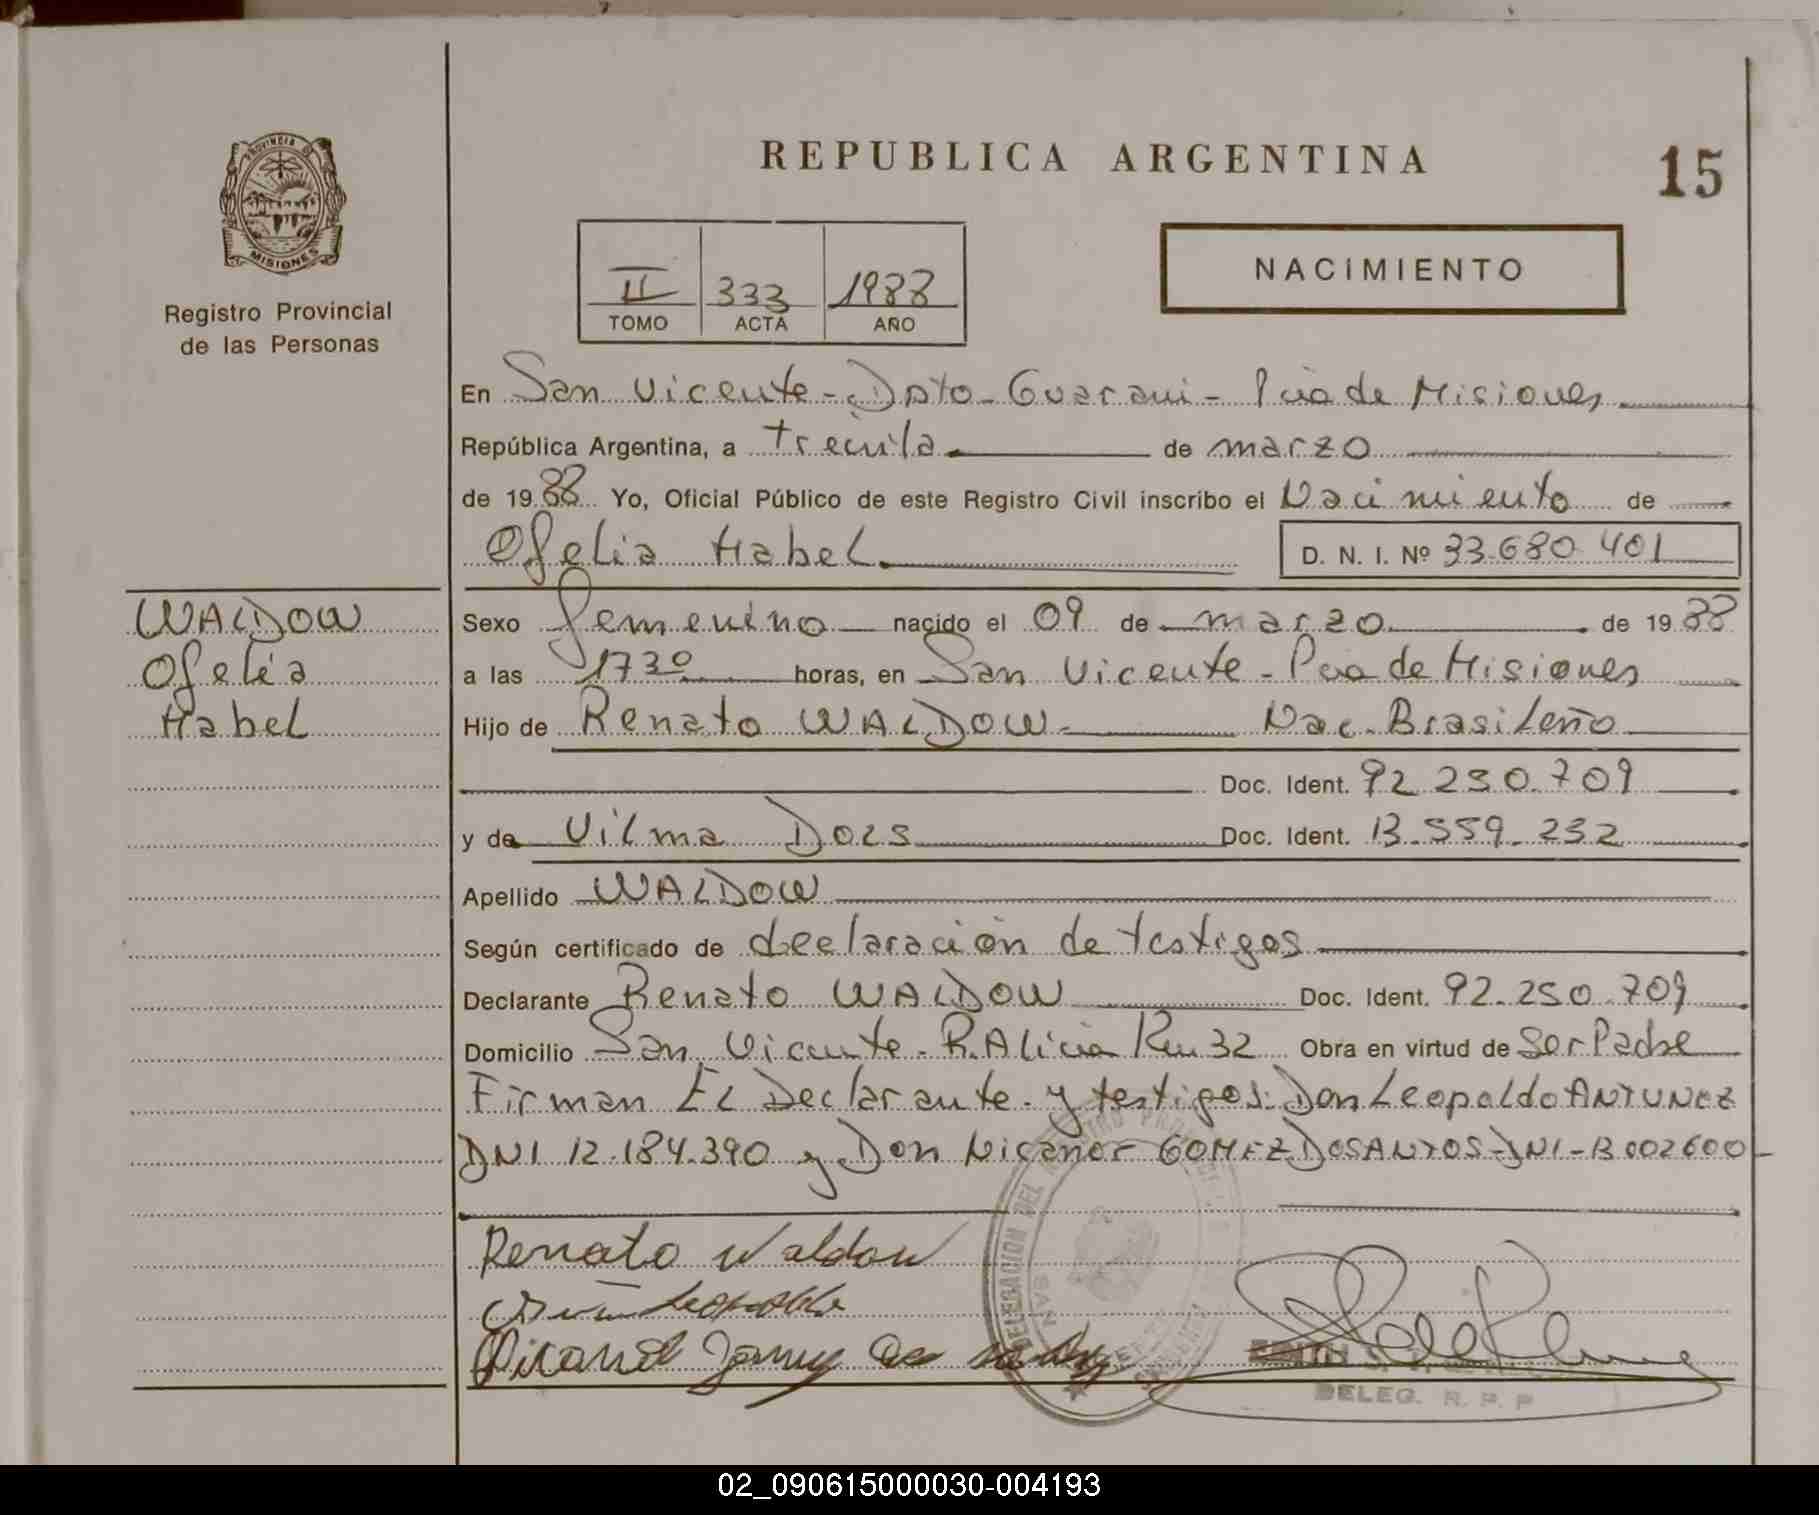 PROVINCIA DE
MISIONES
Registro Provincial
de las Personas
REPUBLICA ARGENTINA
15
II 333 1988
TOMO ACTA AÑO
NACIMIENTO
En San Vicente - Dpto - Guarani - Pcia de Misiones
República Argentina, a treinta de marzo
de 1988 Yo, Oficial Público de este Registro Civil inscribo el Nacimiento de
Ofelia Mabel D. N. I. Nº 33.680.401
WALDOW
Ofelia
Mabel
Sexo femenino nacido el 09 de marzo de 1988
a las 1730 horas, en San Vicente - Pcia de Misiones
Hijo de Renato WALDOW Nac. Brasileño
Doc. Ident. 92.250.709
y de Vilma Doc. Ident. 13.559.232
Apellido WALDOW
Según certificado de declaración de testigos
Declarante Renato WALDOW Doc. Ident. 92.250.709
Domicilio San Vicente - P. Alicia Km 32 Obra en virtud de Ser Padre
Firman El Declarante y testigos: Don Leopoldo ANTUNEZ
DNI 12.184.390 y Don Nicanor GOMEZ DOSANTOS - DNI - 13002600
Renato Waldow
DELEGACION DEL REGISTRO
SAN
DELEG. R. P. P
02_090615000030-004193